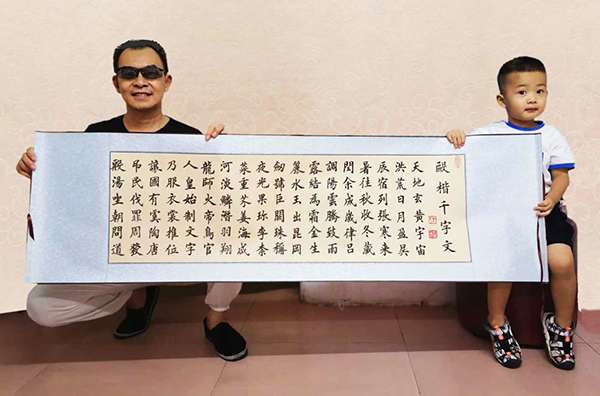 歐楷千字文
天地玄黃宇宙
洪荒日月盈昃
辰宿列張寒来
暑往秋收冬藏
閏余成歲律吕
調陽雲騰致雨
露結為霜金生
麗水玉出昆岡
劍號巨闕珠稱
夜光果珍李柰
菜重芥姜海咸
河淡鱗潛羽翔
龍師火帝鳥官
人皇始制文字
乃服衣裳推位
讓國有虞陶唐
吊民伐罪周發
殷湯坐朝問道